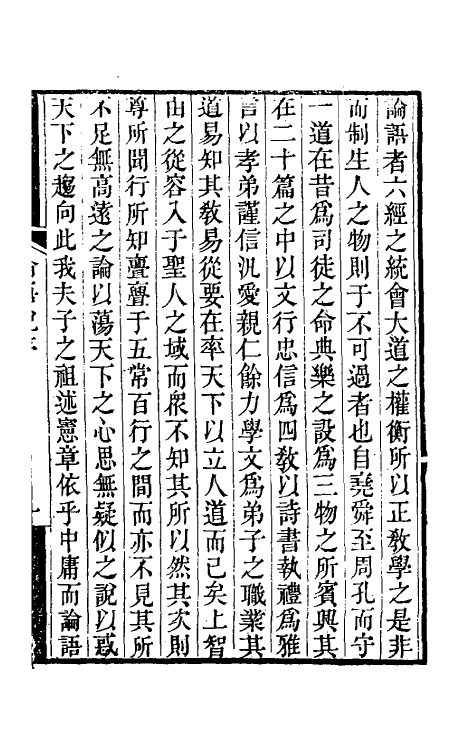 論語者六經之統會大道之權衡所以正敎學之是非
而制生人之物則于不可過者也自堯舜至周孔而守
一道在昔爲司徒之命典樂之設爲三物之所賓興其
在二十篇之中以文行忠信爲四敎以詩書執禮爲雅
言以孝弟謹信汎愛親仁餘力學文爲弟子之職業其
道易知其敎易從要在率天下以立人道而已矣上智
由之從容入于聖人之域而衆不知其所以然其次則
尊所聞行所知亹亹于五常百行之間而亦不見其所
不足無高遠之論以蕩天下之心思無疑似之說以惑
天下之趨向此我夫子之祖述憲章依乎中庸而論語
序
一